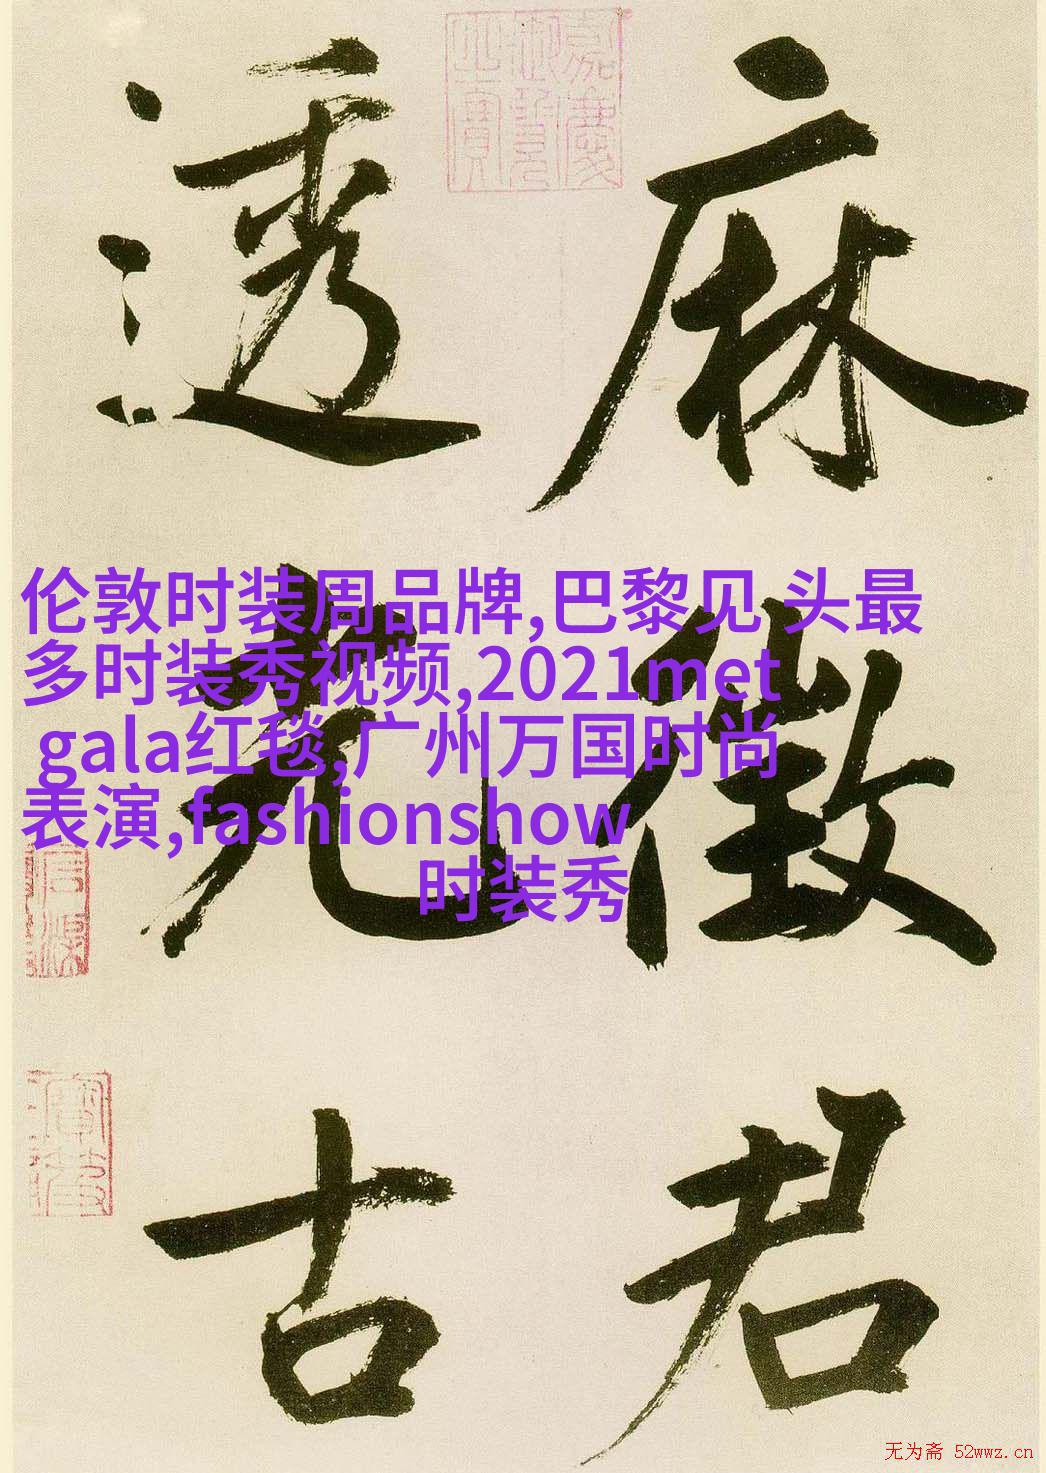 嘉慶
御覽
之寶
麻徵君
透光古
伦敦时装周品牌,巴黎见 头最
多时装秀视频,2021met
gala红毯,广州万国时尚
表演,fashionshow
时装秀
无为斋 52wwz.cn